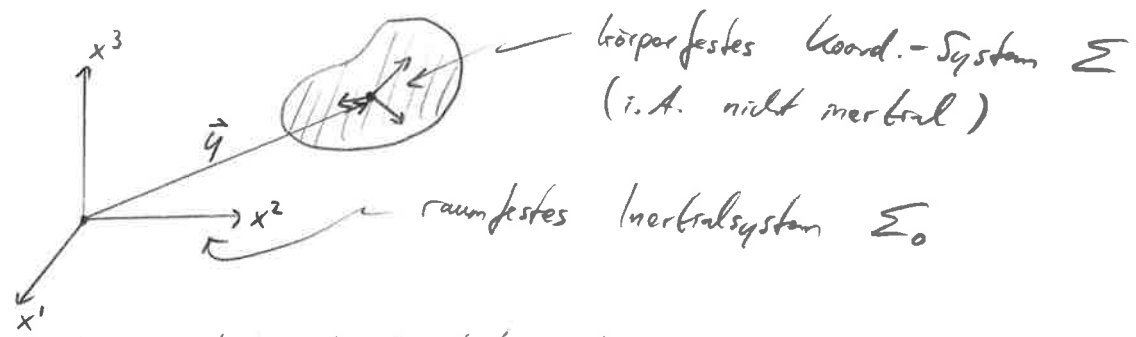 x³
körperfestes Koord.-System Σ
(i.A. nicht inertial)
x²
raumfestes Inertialsystem Σ₀
x¹